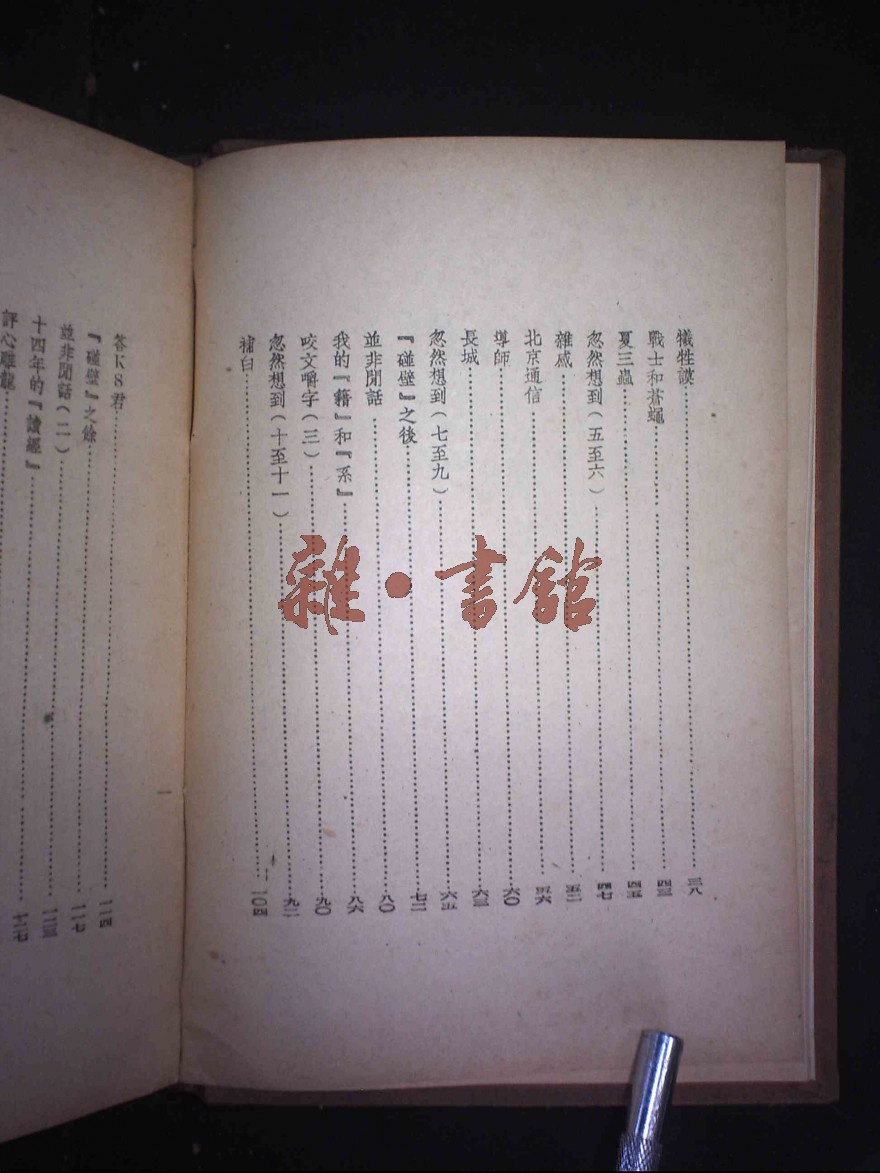 犧牲謨……三八
戰士和蒼蠅……四三
夏三蟲……四五
忽然想到（五至六）……四七
雜感……五二
北京通信……五六
導師……六〇
長城……六三
忽然想到（七至九）……六五
『碰壁』之後……七二
並非閒話……八〇
我的『籍』和『系』……八六
咬文嚼字（三）……九〇
忽然想到（十至十一）……九二
補白……一〇四
答KS君……一一四
『碰壁』之餘……一一七
並非閒話（二）……一二三
十四年的『讀經』……一二七
評心雕龍
雜·書館